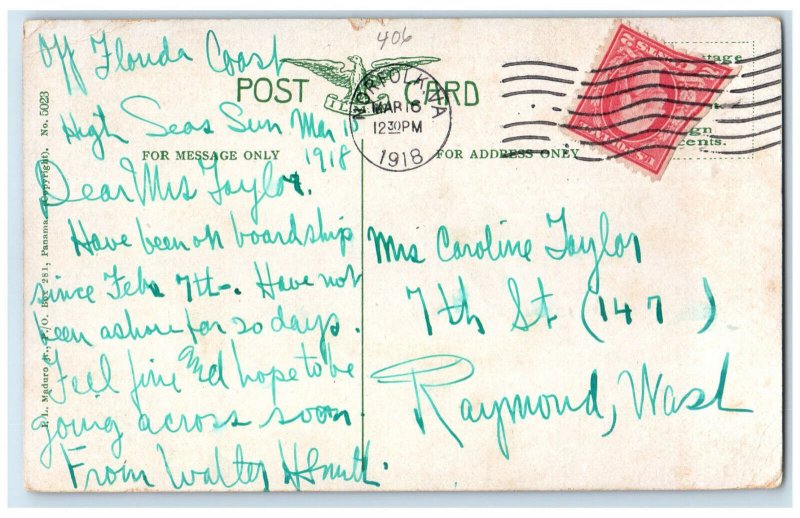 Off Florida Coast
406
POST CARD
High Seas Sun Mar 10
1918
NORFOLK, VA
MAR 16
1230PM
1918
FOR MESSAGE ONLY
FOR ADDRESS ONLY
Dear Mrs Taylor.
Have been on boardship
since Feb 7th-. Have not
been ashore for 20 days.
Feel fine and hope to be
going across soon
From Walter H Smith.
Mrs Caroline Taylor
7th St (147)
Raymond, Wash
I. L. Maduro Jr., P./O. Box 281, Panama. (Copyright). No. 5023